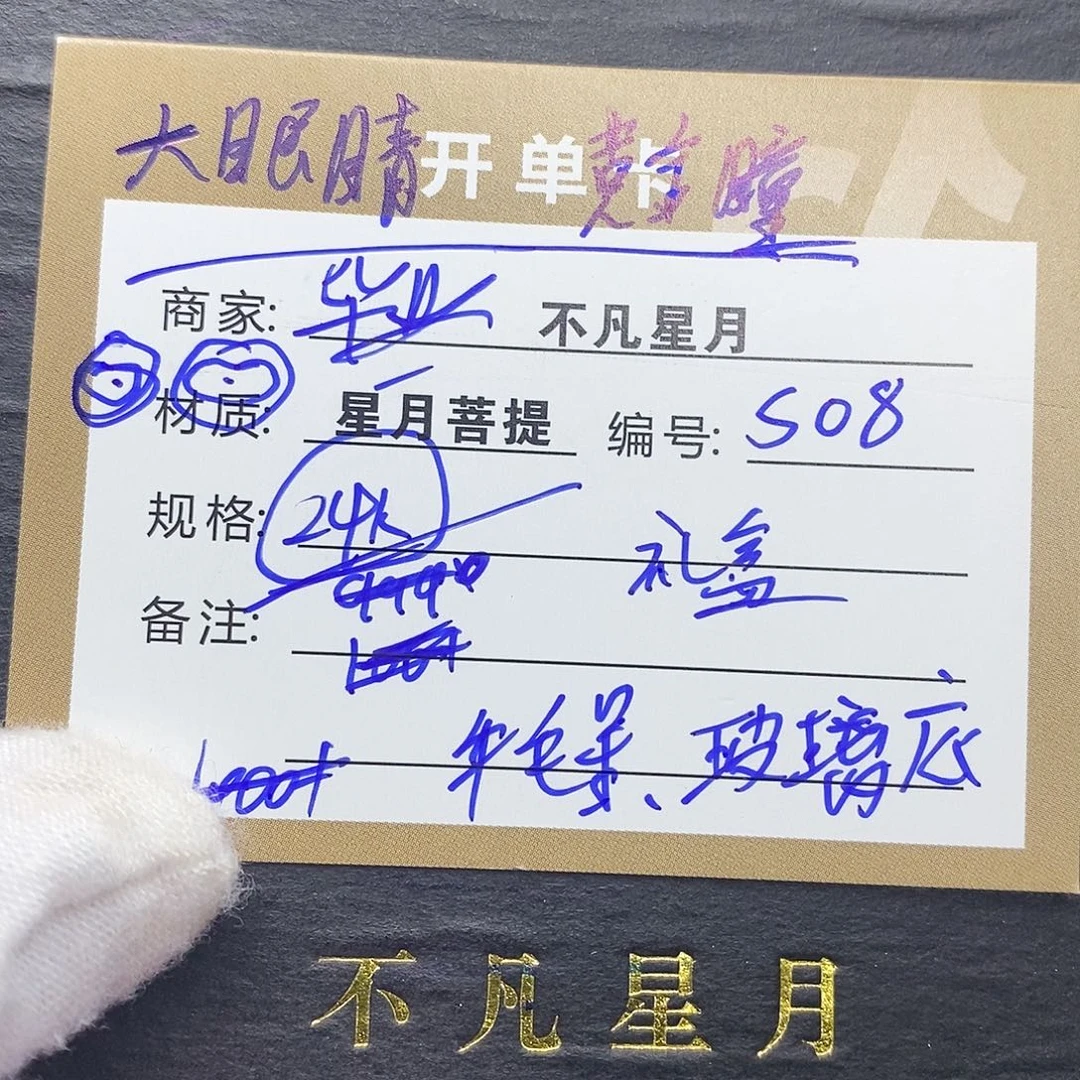 大眼睛 开单卡
商家: 毕业 不凡星月
材质: 星月菩提 编号: S08
规格: 24k
礼盒
备注:
牛毛 玻璃底
不凡星月